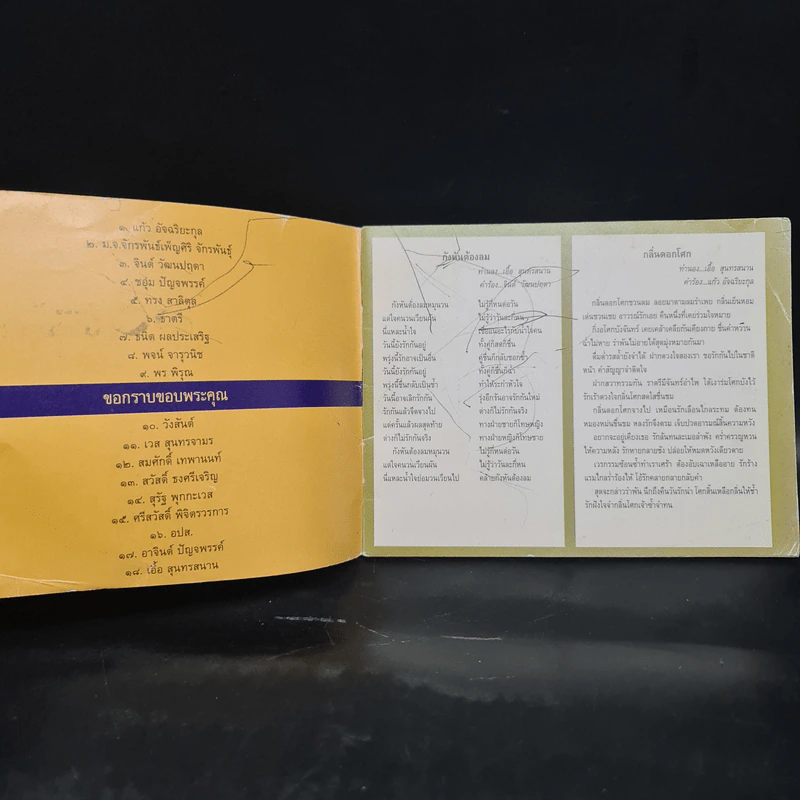 ๑. แก้ว อัจฉริยะกุล
๒. ม.จ.จักรพันธ์เพ็ญศิริ จักรพันธุ์
๓. จินต์ วัฒนปฤดา
๔. ชอุ่ม ปัญจพรรค์
๕. ทรง สาลิตุล
๖. ธาตรี
๗. ธนิต ผลประเสริฐ
๘. พจน์ จารุวนิช
๙. พร พิรุณ
ขอกราบขอบพระคุณ
๑๐. วังสันต์
๑๑. เวส สุนทรจามร
๑๒. สมศักดิ์ เทพานนท์
๑๓. สวัสดิ์ ธงศรีเจริญ
๑๔. สุรัฐ พุกกะเวส
๑๕. ศรีสวัสดิ์ พิจิตรวรการ
๑๖. อปส.
๑๗. อาจินต์ ปัญจพรรค์
๑๘. เอื้อ สุนทรสนาน
กังหันต้องลม
ทำนอง...เอื้อ สุนทรสนาน
คำร้อง...จินต์ วัฒนปฤดา
กังหันต้องลมหมุนวน ไม่รู้กี่หนต่อวัน
แต่ใจคนวนเวียนผัน ไม่รู้ว่าวันละกี่หน
นี่แหละน้ำใจ เชื่อถืออะไรกับน้ำใจคน
วันนี้ยังรักกันอยู่ ทั้งคู่ก็สดก็ชื่น
พรุ่งนี้รักอาจเป็นอื่น คู่ชื่นก็กลับชอกช้ำ
วันนี้ยังรักกันอยู่ ทั้งคู่ก็ชื่นก็ฉ่ำ
พรุ่งนี้ชื่นกลับเป็นช้ำ ทำให้ระกำหัวใจ
วันนี้อาจเลิกรักกัน รุ่งอีกวันอาจรักกันใหม่
รักกันแล้วจืดจางไป ต่างก็ไม่รักกันจริง
แต่ครั้นแล้วผลสุดท้าย ทางฝ่ายชายก็โทษหญิง
ต่างก็ไม่รักกันจริง ทางฝ่ายหญิงก็โทษชาย
กังหันต้องลมหมุนวน ไม่รู้กี่หนต่อวัน
แต่ใจคนวนเวียนผัน ไม่รู้ว่าวันละกี่หน
นี่แหละน้ำใจย่อมวนเวียนไป คล้ายกังหันต้องลม
กลิ่นดอกโศก
ทำนอง...เอื้อ สุนทรสนาน
คำร้อง...แก้ว อัจฉริยะกุล
กลิ่นดอกโศกชวนดม ลอยมาตามลมรำเพย กลิ่นเย็นหอม
เด่นชวนเชย อาวรณ์รักเอย คืนหนึ่งที่เคยร่วมใจหมาย
กิ่งอโศกบังจันทร์ เคยเคล้าเคลียกันเคียงกาย ชื่นคำหวาน
น้ำไม่หาย รำพันไม่อายได้สุดมุ่งหมายกันมา
ดื่มด่ำรสล้ำยังจำได้ ฝากดวงใจสองเรา ขอรักกันไปในชาติ
หน้า คำสัญญาจำติดใจ
ฝากสวาทรวมกัน ราตรีมีจันทร์อำไพ ได้เงาร่มโศกบังไว้
รักเร้าดวงใจกลิ่นโศกสดใสชื่นชม
กลิ่นดอกโศกจางไป เหมือนรักเลือนไกลระทม ต้องทน
หมองหม่นขื่นขม หลงรักจึงตรม เจ็บปวดอารมณ์สิ้นความหวัง
อยากจะอยู่เคียงเธอ รักฉันทนละเมอลำพัง คร่ำครวญหวน
ให้ความหลัง รักหายกลายชัง ปล่อยให้หมดหวังเดียวดาย
เวรกรรมซ้อนซ้ำทำเราเศร้า ต้องอับเฉาเหลืออาย รักร้าง
แรมไกลร่ำร้องไห้ โอ้รักคลายกลายกลับคำ
สุดจะกล่าวรำพัน นึกถึงคืนวันรักนำ โศกสิ้นเหลือกลืนให้ช้ำ
รักฝังใจจำกลิ่นโศกเจ้าซ้ำจำทน